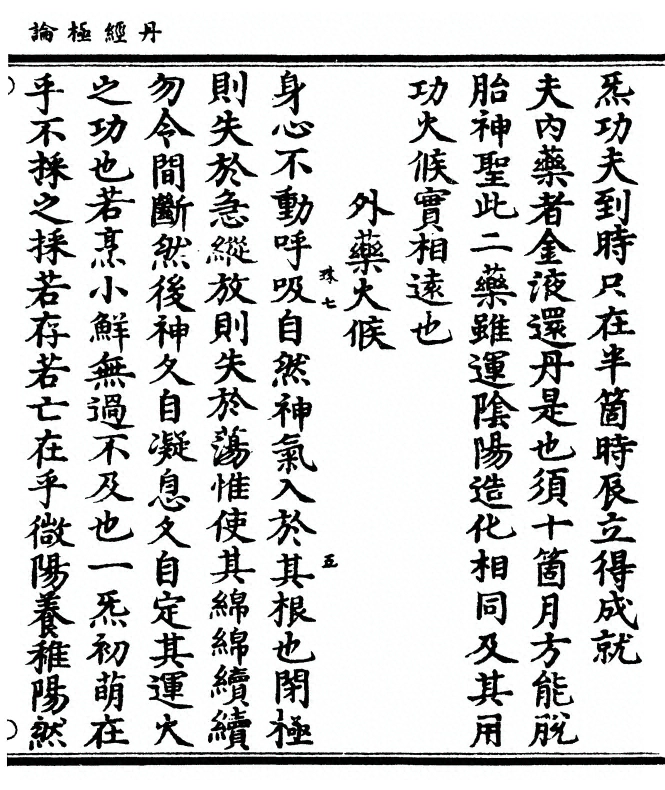 丹經極論
炁功夫到時只在半箇時辰立得成就
夫內藥者金液還丹是也須十箇月方能脫
胎神聖此二藥雖運陰陽造化相同及其用
功火候實相遠也
外藥火候
珠七
五
身心不動呼吸自然神氣入於其根也閉極
則失於急縱放則失於蕩惟使其綿綿續續
勿令間斷然後神久自凝息久自定其運火
之功也若烹小鮮無過不及也一炁初萌在
乎不採之採若存若亡在乎微陽養稚陽然